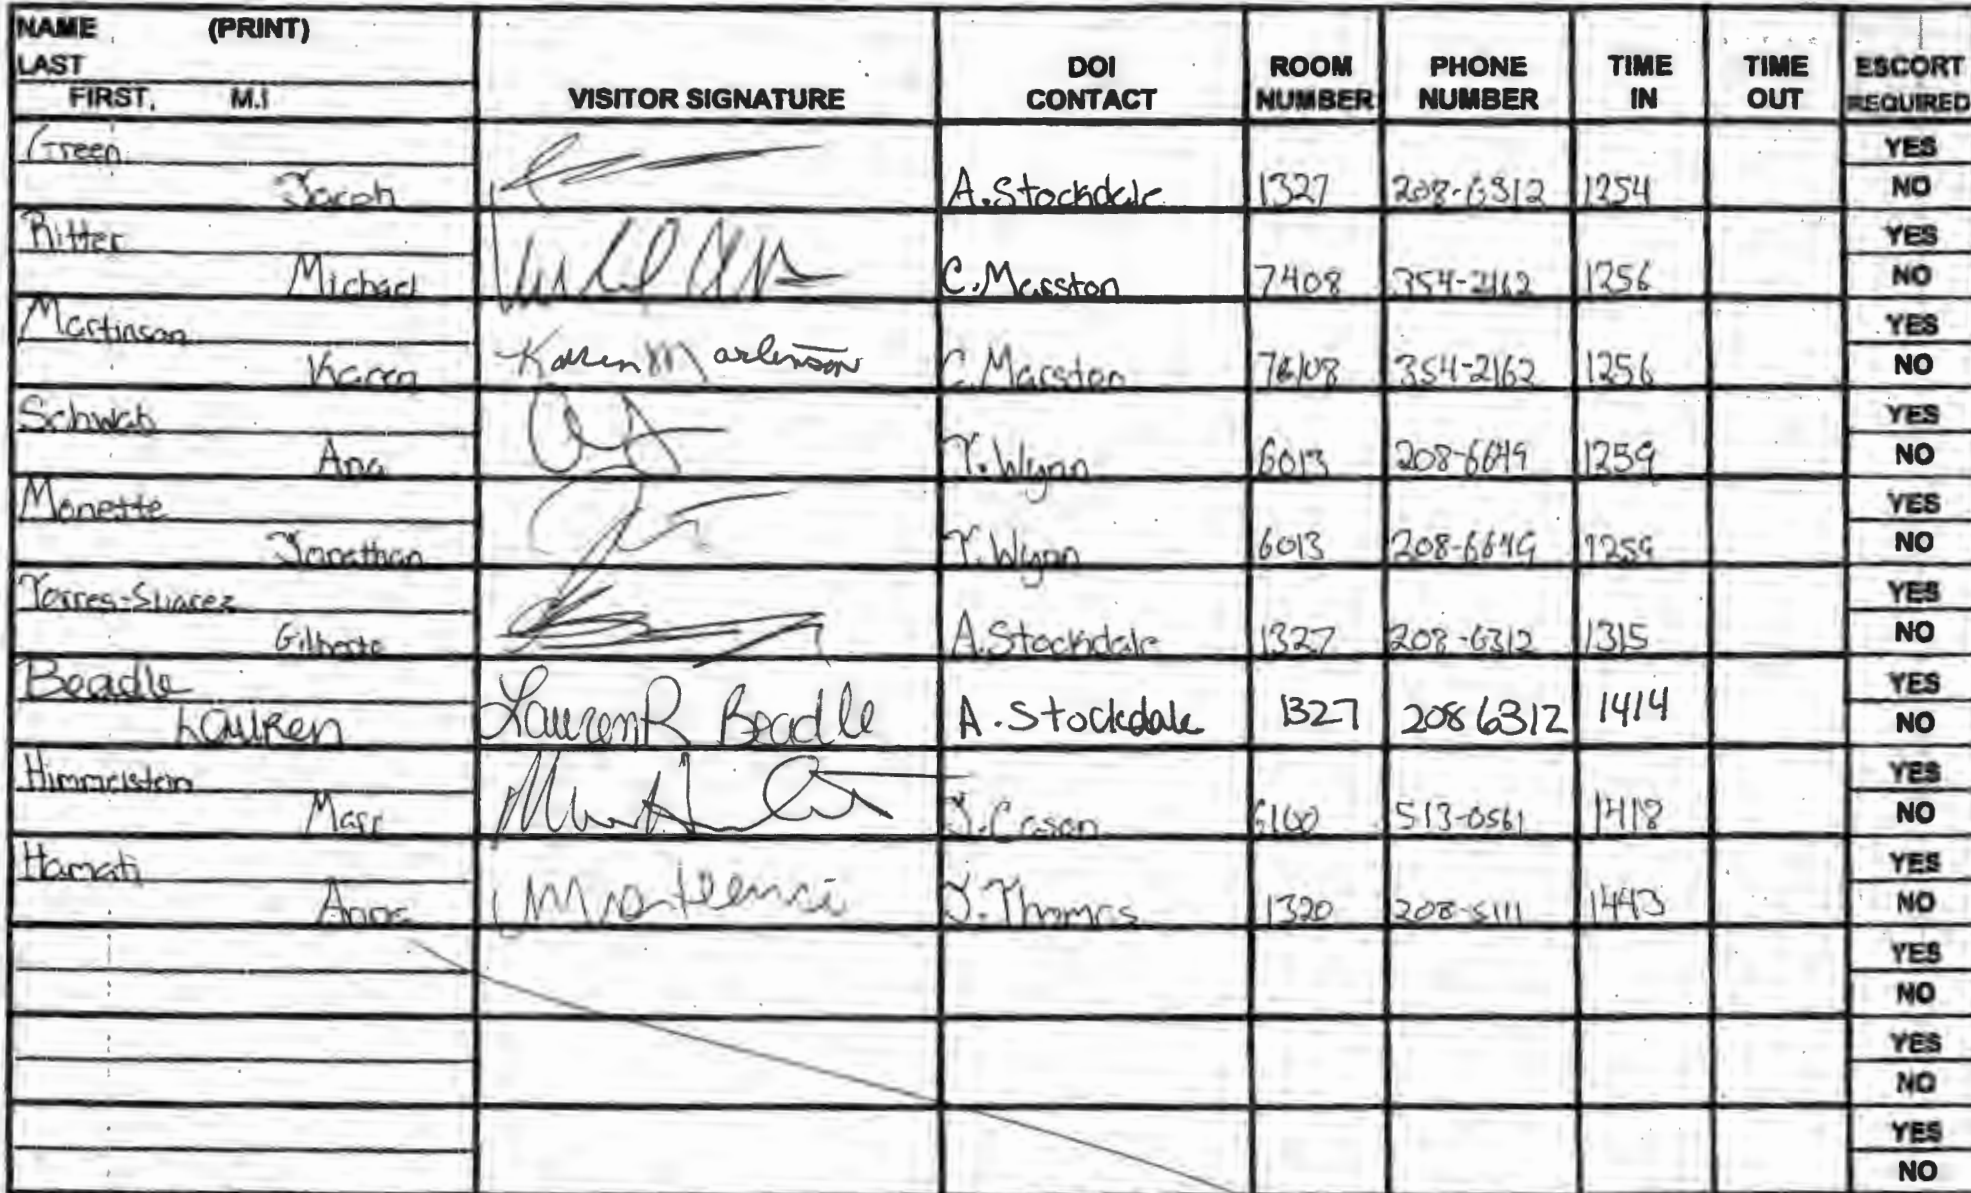 NAME (PRINT)
LAST
FIRST, M.I
VISITOR SIGNATURE
DOI CONTACT
ROOM NUMBER
PHONE NUMBER
TIME IN
TIME OUT
ESCORT REQUIRED
Green YES
Jacob A. Stockdale 1327 208-6312 1254 NO
Ritter YES
Michael C. Marston 7408 354-2162 1256 NO
Martinson YES
Karen Karen Martinson C. Marston 354-2162 1256 NO
Schwab YES
Ana T. Wynn 6013 208-6649 1259 NO
Monette YES
Jonathan T. Wynn 6013 208-6649 1259 NO
Torres-Suarez YES
Gilberto A. Stockdale 1327 208-6312 1315 NO
Beadle YES
Lauren Lauren R Beadle A. Stockdale 1327 208 6312 1414 NO
Himmelstein YES
Marc J. Cason 6100 513-0561 1418 NO
Hamati YES
J. Thomas 1320 208-5111 1443 NO
YES
NO
YES
NO
YES
NO